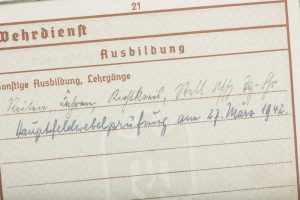 21
Wehrdienst
Ausbildung
onstige Ausbildung, Lehrgänge
Reiten, Fahren,
Hauptfeldwebelprüfung am 27. März 1942.